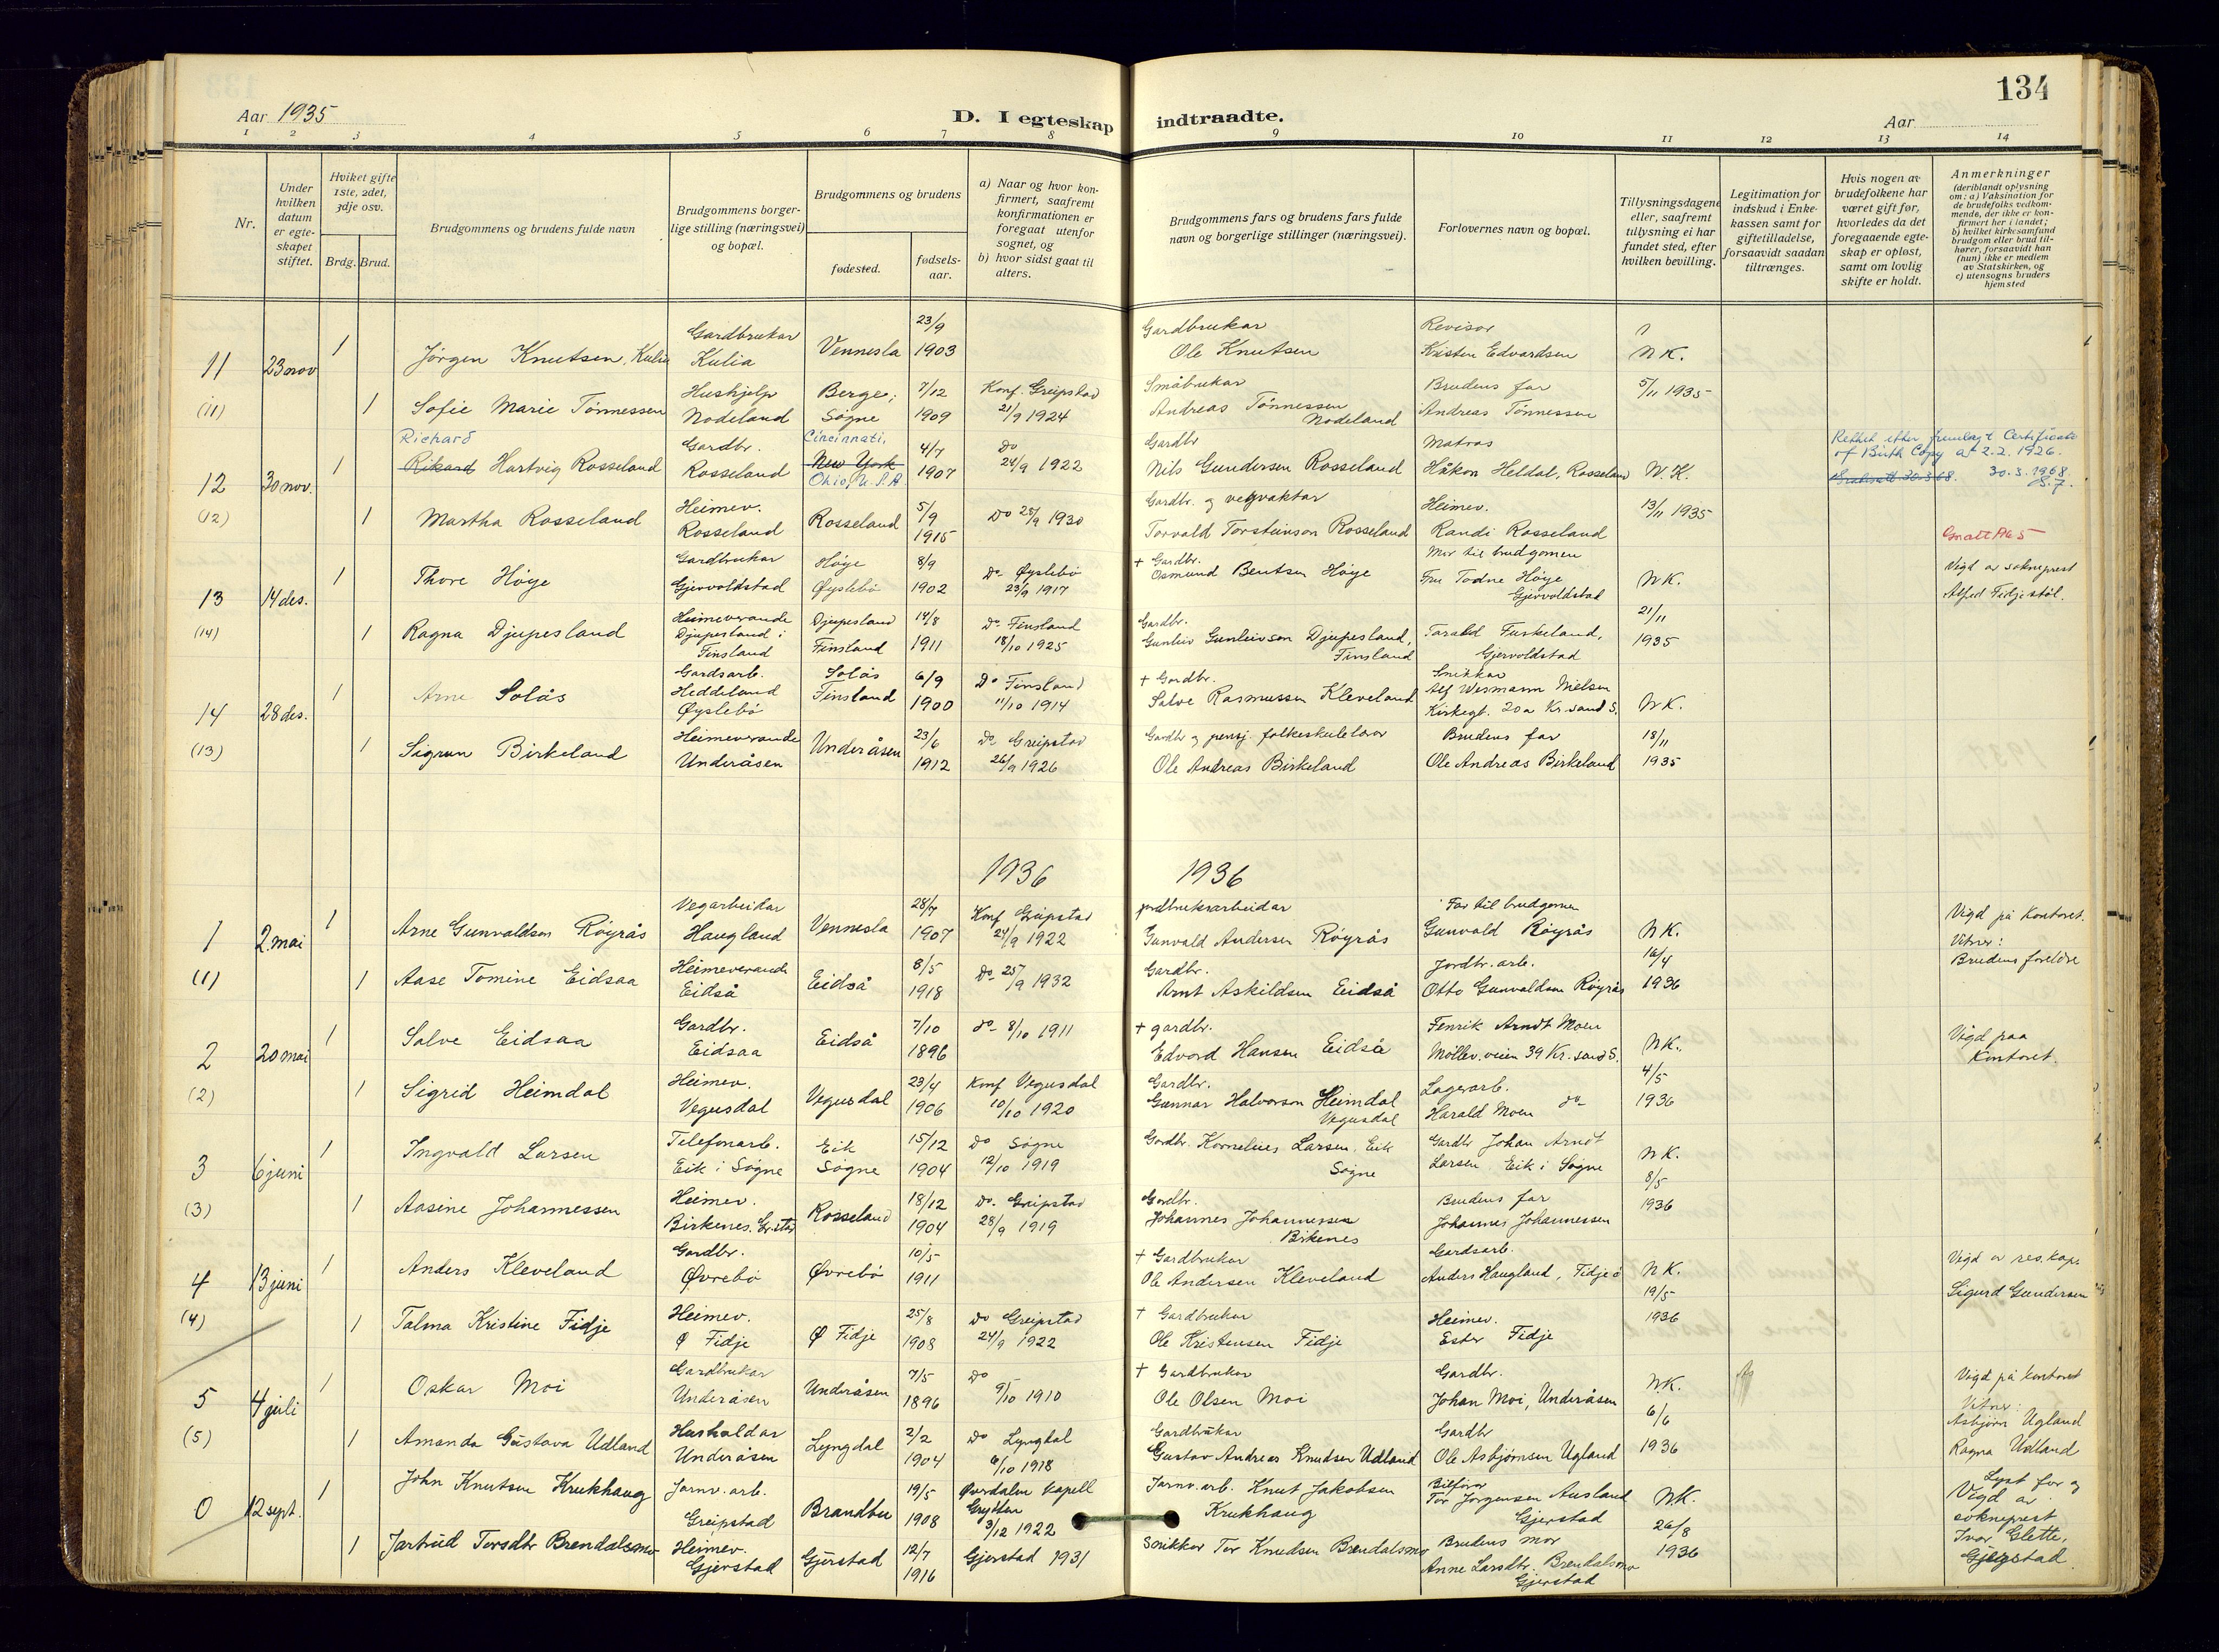 134
Aar 1935
D. I egteskap indtraadte.
Aar
1 2 3 4 5 6 7 8 9 10 11 12 13 14
Nr.
Under hvilken datum er egteskapet stiftet.
Hviket gifte 1ste, 2det, 3dje osv.
Brdg. Brud.
Brudgommens og brudens fulde navn
Brudgommens borgerlige stilling (næringsvei) og bopæl.
Brudgommens og brudens
fødested.
fødselsaar.
a) Naar og hvor konfirmert, saafremt konfirmationen er foregaat utenfor sognet, og
b) hvor sidst gaat til alters.
Brudgommens fars og brudens fars fulde navn og borgerlige stillinger (næringsvei).
Forlovernes navn og bopæl.
Tillysningsdagene eller, saafremt tillysning ei har fundet sted, efter hvilken bevilling.
Legitimation for indskud i Enkekassen samt for giftetilladelse, forsaavidt saadan tiltrænges.
Hvis nogen av brudefolkene har været gift før, hvorledes da det foregaaende egteskap er opløst, samt om lovlig skifte er holdt.
Anmerkninger (deriblandt oplysning om: a) Vaksination for de brudefolks vedkommende, der ikke er konfirmert her i landet; b) hvilket kirkesamfund brudgom eller brud tilhører, forsaavidt han (hun) ikke er medlem av Statskirken, og c) utensogns bruders hjemsted
11 23 nov 1 Jörgen Knutsen, Kulia Gardbrukar Kulia Vennesla 23/9 1903 Gardbrukar Ole Knutsen Revisor Kristen Edvardsen N.K.
(11) 1 Sofie Marie Tönnessen Hushjelp Nodeland Berge, Søgne 7/12 1909 Konf. Greipstad 21/9 1924 Småbrukar Andreas Tönnessen Nodeland Brudens far Andreas Tönnessen 5/11 1935
12 30 nov. 1 Richard Rikard Hartvig Rosseland Gardbr. Rosseland Cincinnati, New York Ohio, U.S.A 4/7 1907 Do 24/9 1922 Gardbr Nils Gundersen Rosseland Matros Håkon Heldal, Rosseland N.K. Rettet etter fremlagt Certificate of Birth Copy af 2.2.1926. 30.3.1968.
(12) 1 Martha Rosseland Heimev. Rosseland Rosseland 5/9 1915 Do 28/9 1930 Gardbr. og vegvaktar Torvald Torsteinson Rosseland Heimev. Randi Rosseland 13/11 1935
13 14 des. 1 Thore Höye Gardbrukar Gjervoldstad Höye Øyslebö 8/9 1902 Do Øyslebö 23/9 1917 + Gardbr. Osmund Bentsen Höye Mor til brudgomen Fru Todne Höye Gjervoldstad N.K. Vigd av sokneprest Alfred Fidjestöl.
(14) 1 Ragna Djupesland Heimeverande Djupesland i Finsland Djupesland Finsland 14/8 1911 Do Finsland 18/10 1925 Gardbr. Gunleiv Gunleivson Djupesland, Finsland Tarald Fuskeland, Gjervoldstad 21/11 1935
14 28 des. 1 Arne Solås Gardsarb. Heddeland Øyslebö Solås Finsland 6/9 1900 Do Finsland 11/10 1914 + Gardbr. Salve Rasmussen Kleveland Snikkar Alf Wesmann Nielsen Kirkegt. 20a Kr.sand S. N.K.
(13) 1 Sigrun Birkeland Heimeverande Underåsen Underåsen 23/6 1912 Do Greipstad 26/9 1926 Gardbr og pensj. folkeskulelærar Ole Andreas Birkeland Brudens far Ole Andreas Birkeland 18/11 1935
1936 1936
1 2 mai 1 Arne Gunvaldsen Röyrås Vegarbeidar Haugland Vennesla 28/7 1907 Konf Greipstad 24/9 1922 jordbruksarbeidar Gunvald Andersen Röyrås Far til brudgomen Gunvald Röyrås N.K. Vigd på Kontoret. Vitner: Brudens foreldre
(1) 1 Aase Tomine Eidsaa Heimeverande Eidså Eidså 8/5 1918 Do 25/9 1932 Gardbr. Arnt Askildsen Eidså Jordbr. arb. Otto Gunvaldsen Röyrås 16/4 1936
2 20 mai 1 Salve Eidsaa Gardbr. Eidsaa Eidså 7/10 1896 do 8/10 1911 + gardbr. Edvard Hansen Eidså Fenrik Arndt Moen Møllev.veien 39 Kr.sand S. N.K. Vigd paa Kontoret.
(2) 1 Sigrid Heimdal Heimev. Vegusdal Vegusdal 23/4 1906 Konf Vegusdal 10/10 1920 Gardbr. Gunnar Halvorson Heimdal Vegusdal Lagerarb. Harald Moen do 4/5 1936
3 6 juni 1 Ingvald Larsen Telefonarb. Eik i Søgne Eik Søgne 15/12 1904 Do Søgne 12/10 1919 Gardbr. Kornelius Larsen, Eik Søgne Gardbr Johan Arndt Larsen Eik i Søgne N.K.
(3) 1 Aasine Johannessen Heimev. Birkenes, Gr.stad Rosseland 18/12 1904 Do. Greipstad 28/9 1919 Gardbr. Johannes Johannessen Birkenes Brudens far Johannes Johannessen 8/5 1936
4 13 juni 1 Anders Kleveland Gardbr. Øvrebö Øvrebö 10/5 1911 + Gardbrukar Ole Andersen Kleveland Gardsarb. Anders Haugland, Fidje N.K. Vigd av res.kap. Sigurd Gundersen
(4) 1 Talma Kristine Fidje Heimev. Ø Fidje Ø Fidje 25/8 1908 Do Greipstad 24/9 1922 + Gardbrukar Ole Kristensen Fidje Heimev. Ester Fidje 19/5 1936
5 4 juli 1 Oskar Moi Gardbrukar Underåsen Underåsen 7/5 1896 Do 9/10 1910 + Gardbrukar Ole Olsen Moi Gardbr. Johan Moi, Underåsen N.K. Vigd på kontoret Vitner: Asbjörn Ugland Ragna Udland
(5) 1 Amanda Gustava Udland Hushaldar Underåsen Lyngdal 2/2 1904 Do Lyngdal 6/10 1918 Gardbrukar Gustav Andreas Knudsen Udland Gardbr Ole Asbjørnsen Ugland 6/6 1936
0 12 sept. 1 John Knutsen Krukhaug Jarnv. arb. Greipstad Brandbu 19/5 1908 Øvrdalen Kapell Grytten 3/12 1922 Jarnv. arb. Knut Jakobsen Krukhaug Bilförar Tor Jörgensen Ausland Gjerstad N.K. Lyst for og Vigd av sokneprest Ivar Glette, Gjerstad.
1 Jartrud Torsdtr Brendalsmo Heimev. Gjerstad Gjerstad 12/7 1916 Gjerstad 1931 Snikkar Tor Knudsen Brendalsmo Brudens mor Anne Larsdtr. Brendalsmo Gjerstad 26/8 1936